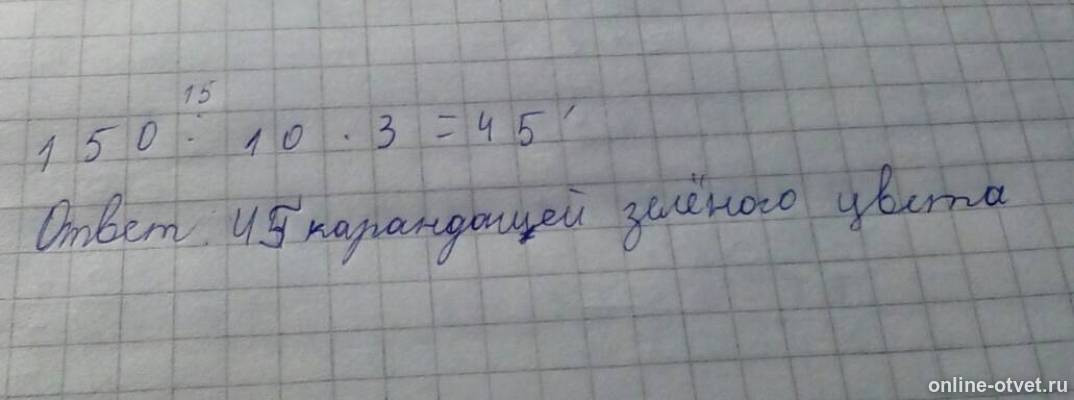 15
150 : 10 · 3 = 45
Ответ: 45 карандащей зелёного цвета
online-otvet.ru